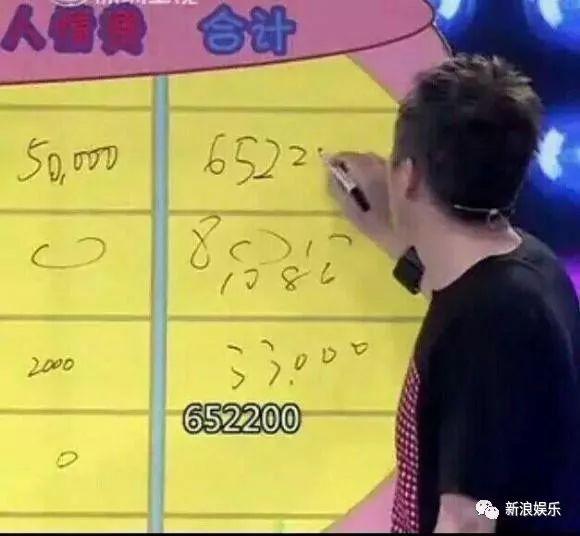 人情费 合计
50,000 6522
0
2000 33,000
652200
0
新浪娱乐